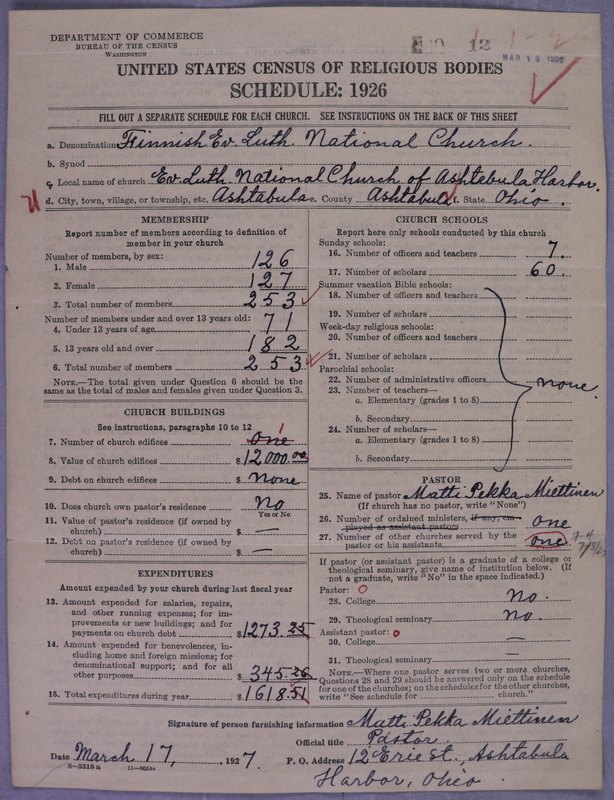 DEPARTMENT OF COMMERCE
BUREAU OF THE CENSUS
WASHINGTON
12
MAR 19 1927
UNITED STATES CENSUS OF RELIGIOUS BODIES
SCHEDULE: 1926
FILL OUT A SEPARATE SCHEDULE FOR EACH CHURCH. SEE INSTRUCTIONS ON THE BACK OF THIS SHEET
a. Denomination Finnish Ev. Luth. National Church.
b. Synod
c. Local name of church Ev. Luth. National Church of Ashtebula Harbor.
d. City, town, village, or township, etc. Ashtabula e. County Ashtabula f. State Ohio.
MEMBERSHIP
Report number of members according to definition of
member in your church
Number of members, by sex:
1. Male 126
2. Female 127
3. Total number of members 253
Number of members under and over 13 years old:
4. Under 13 years of age 71
5. 13 years old and over 182
6. Total number of members 253
NOTE.—The total given under Question 6 should be the
same as the total of males and females given under Question 3.
CHURCH BUILDINGS
See instructions, paragraphs 10 to 12
7. Number of church edifices one 1
8. Value of church edifices $12000.00
9. Debt on church edifices $ None
10. Does church own pastor's residence No
Yes or No
11. Value of pastor's residence (if owned by
church) $ —
12. Debt on pastor's residence (if owned by
church) $ —
EXPENDITURES
Amount expended by your church during last fiscal year
13. Amount expended for salaries, repairs,
and other running expenses; for im-
provements or new buildings; and for
payments on church debt $1273.25
14. Amount expended for benevolences, in-
cluding home and foreign missions; for
denominational support; and for all
other purposes $345.26
15. Total expenditures during year $1618.51
CHURCH SCHOOLS
Report here only schools conducted by this church
Sunday schools:
16. Number of officers and teachers 7
17. Number of scholars 60.
Summer vacation Bible schools:
18. Number of officers and teachers
19. Number of scholars
Week-day religious schools:
20. Number of officers and teachers
21. Number of scholars
Parochial schools:
22. Number of administrative officers none.
23. Number of teachers—
a. Elementary (grades 1 to 8)
b. Secondary
24. Number of scholars—
a. Elementary (grades 1 to 8)
b. Secondary
PASTOR
25. Name of pastor Matti Pekka Miettinen
(If church has no pastor, write "None")
26. Number of ordained ministers, if any, em-
ployed as assistant pastors one
27. Number of other churches served by the
pastor or his assistants one
If pastor (or assistant pastor) is a graduate of a college or
theological seminary, give name of institution below. (If
not a graduate, write "No" in the space indicated.)
Pastor:
28. College No.
29. Theological seminary No.
Assistant pastor:
30. College —
31. Theological seminary —
NOTE.—Where one pastor serves two or more churches,
Questions 28 and 29 should be answered only on the schedule
for one of the churches; on the schedules for the other churches,
write "See schedule for church."
Signature of person furnishing information Matti Pekka Miettinen
Official title Pastor.
Date March 17, 1927. P. O. Address 12 Erie St., Ashtabula
8—5518a
Harbor, Ohio.